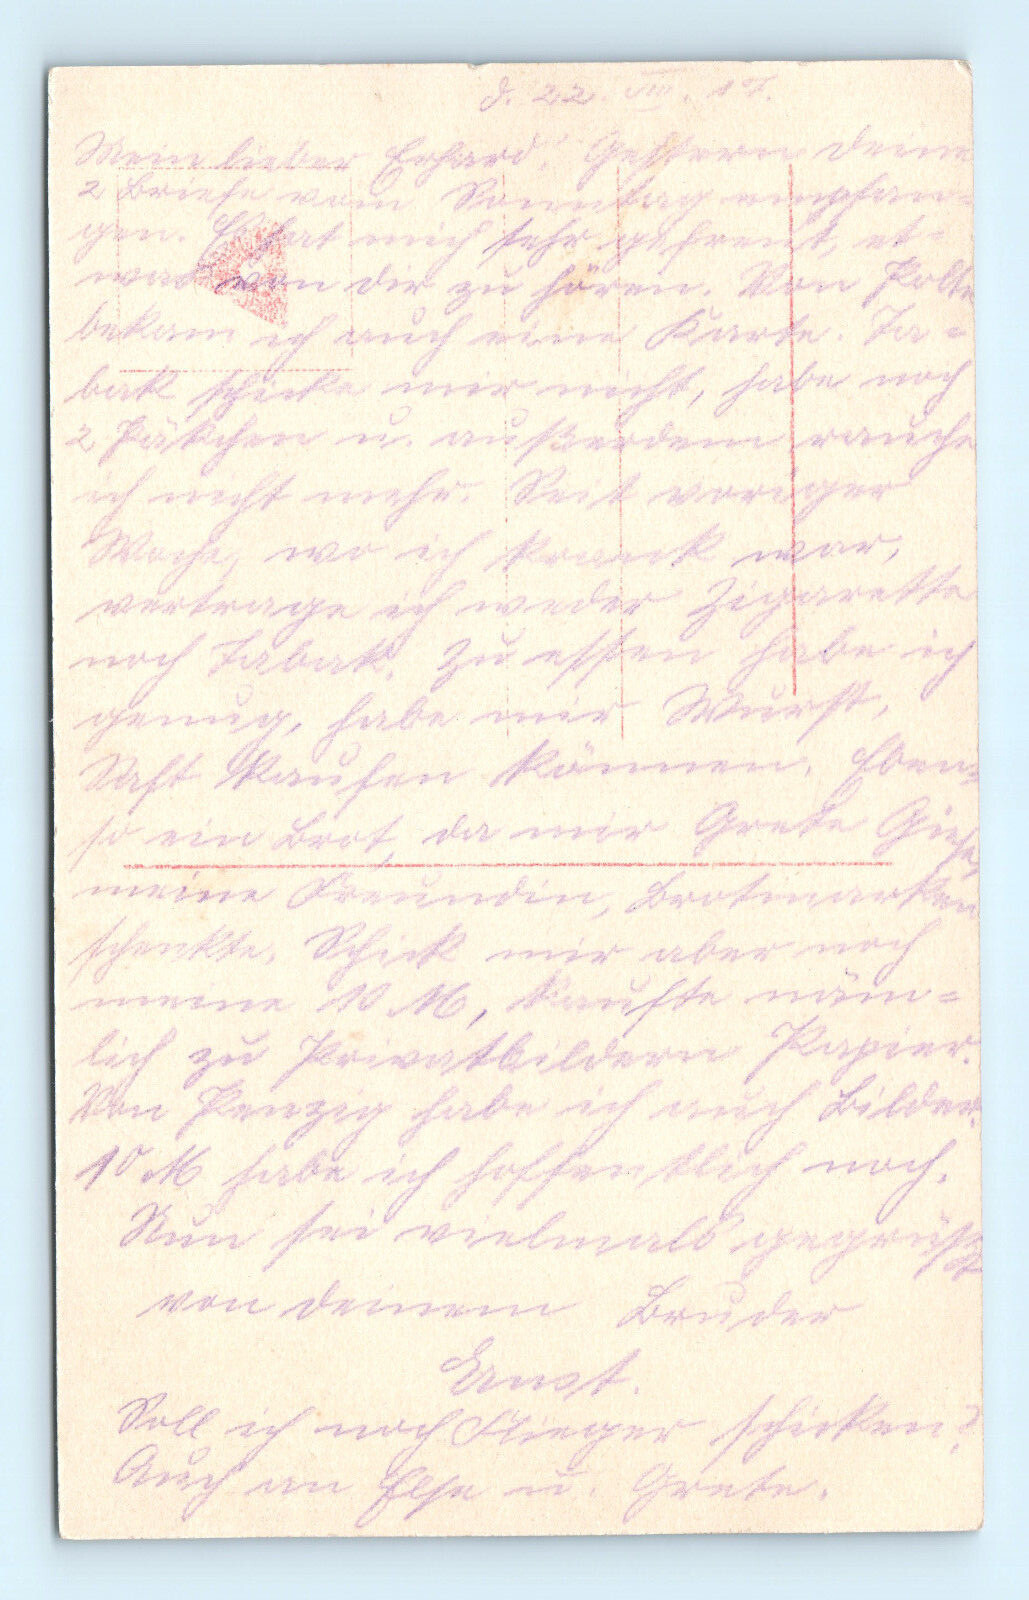 d. 22. VIII. 17.
Mein lieber Erhard! Gestern deine
2 Briefe vom Sonntag empfan-
gen. Es hat mich sehr gefreut, et-
was von dir zu hören. Von Polte
bekam ich auch eine Karte. Ta-
bak schicke mir nicht, habe noch
2 Päkchen u. außerdem rauche
ich nicht mehr. Seit voriger
Woche, wo ich krank war,
vertrage ich weder Zigarette
noch Tabak. Zu essen habe ich
genug, habe mir Wurst,
Saft kaufen können. Eben-
so ein Brot, da mir Grete Giese,
meine Freundin, Brotmarken
schenkte. Schick mir aber noch
meine 10 M, kaufte näm-
lich zu Privatbildern Papier.
Von Penzig habe ich auch Bilder.
10 M habe ich hoffentlich noch.
Nun sei vielmals gegrüßt
von deinem Bruder
Ernst.
Soll ich noch Flieger schicken?
Auch an Else u. Grete.